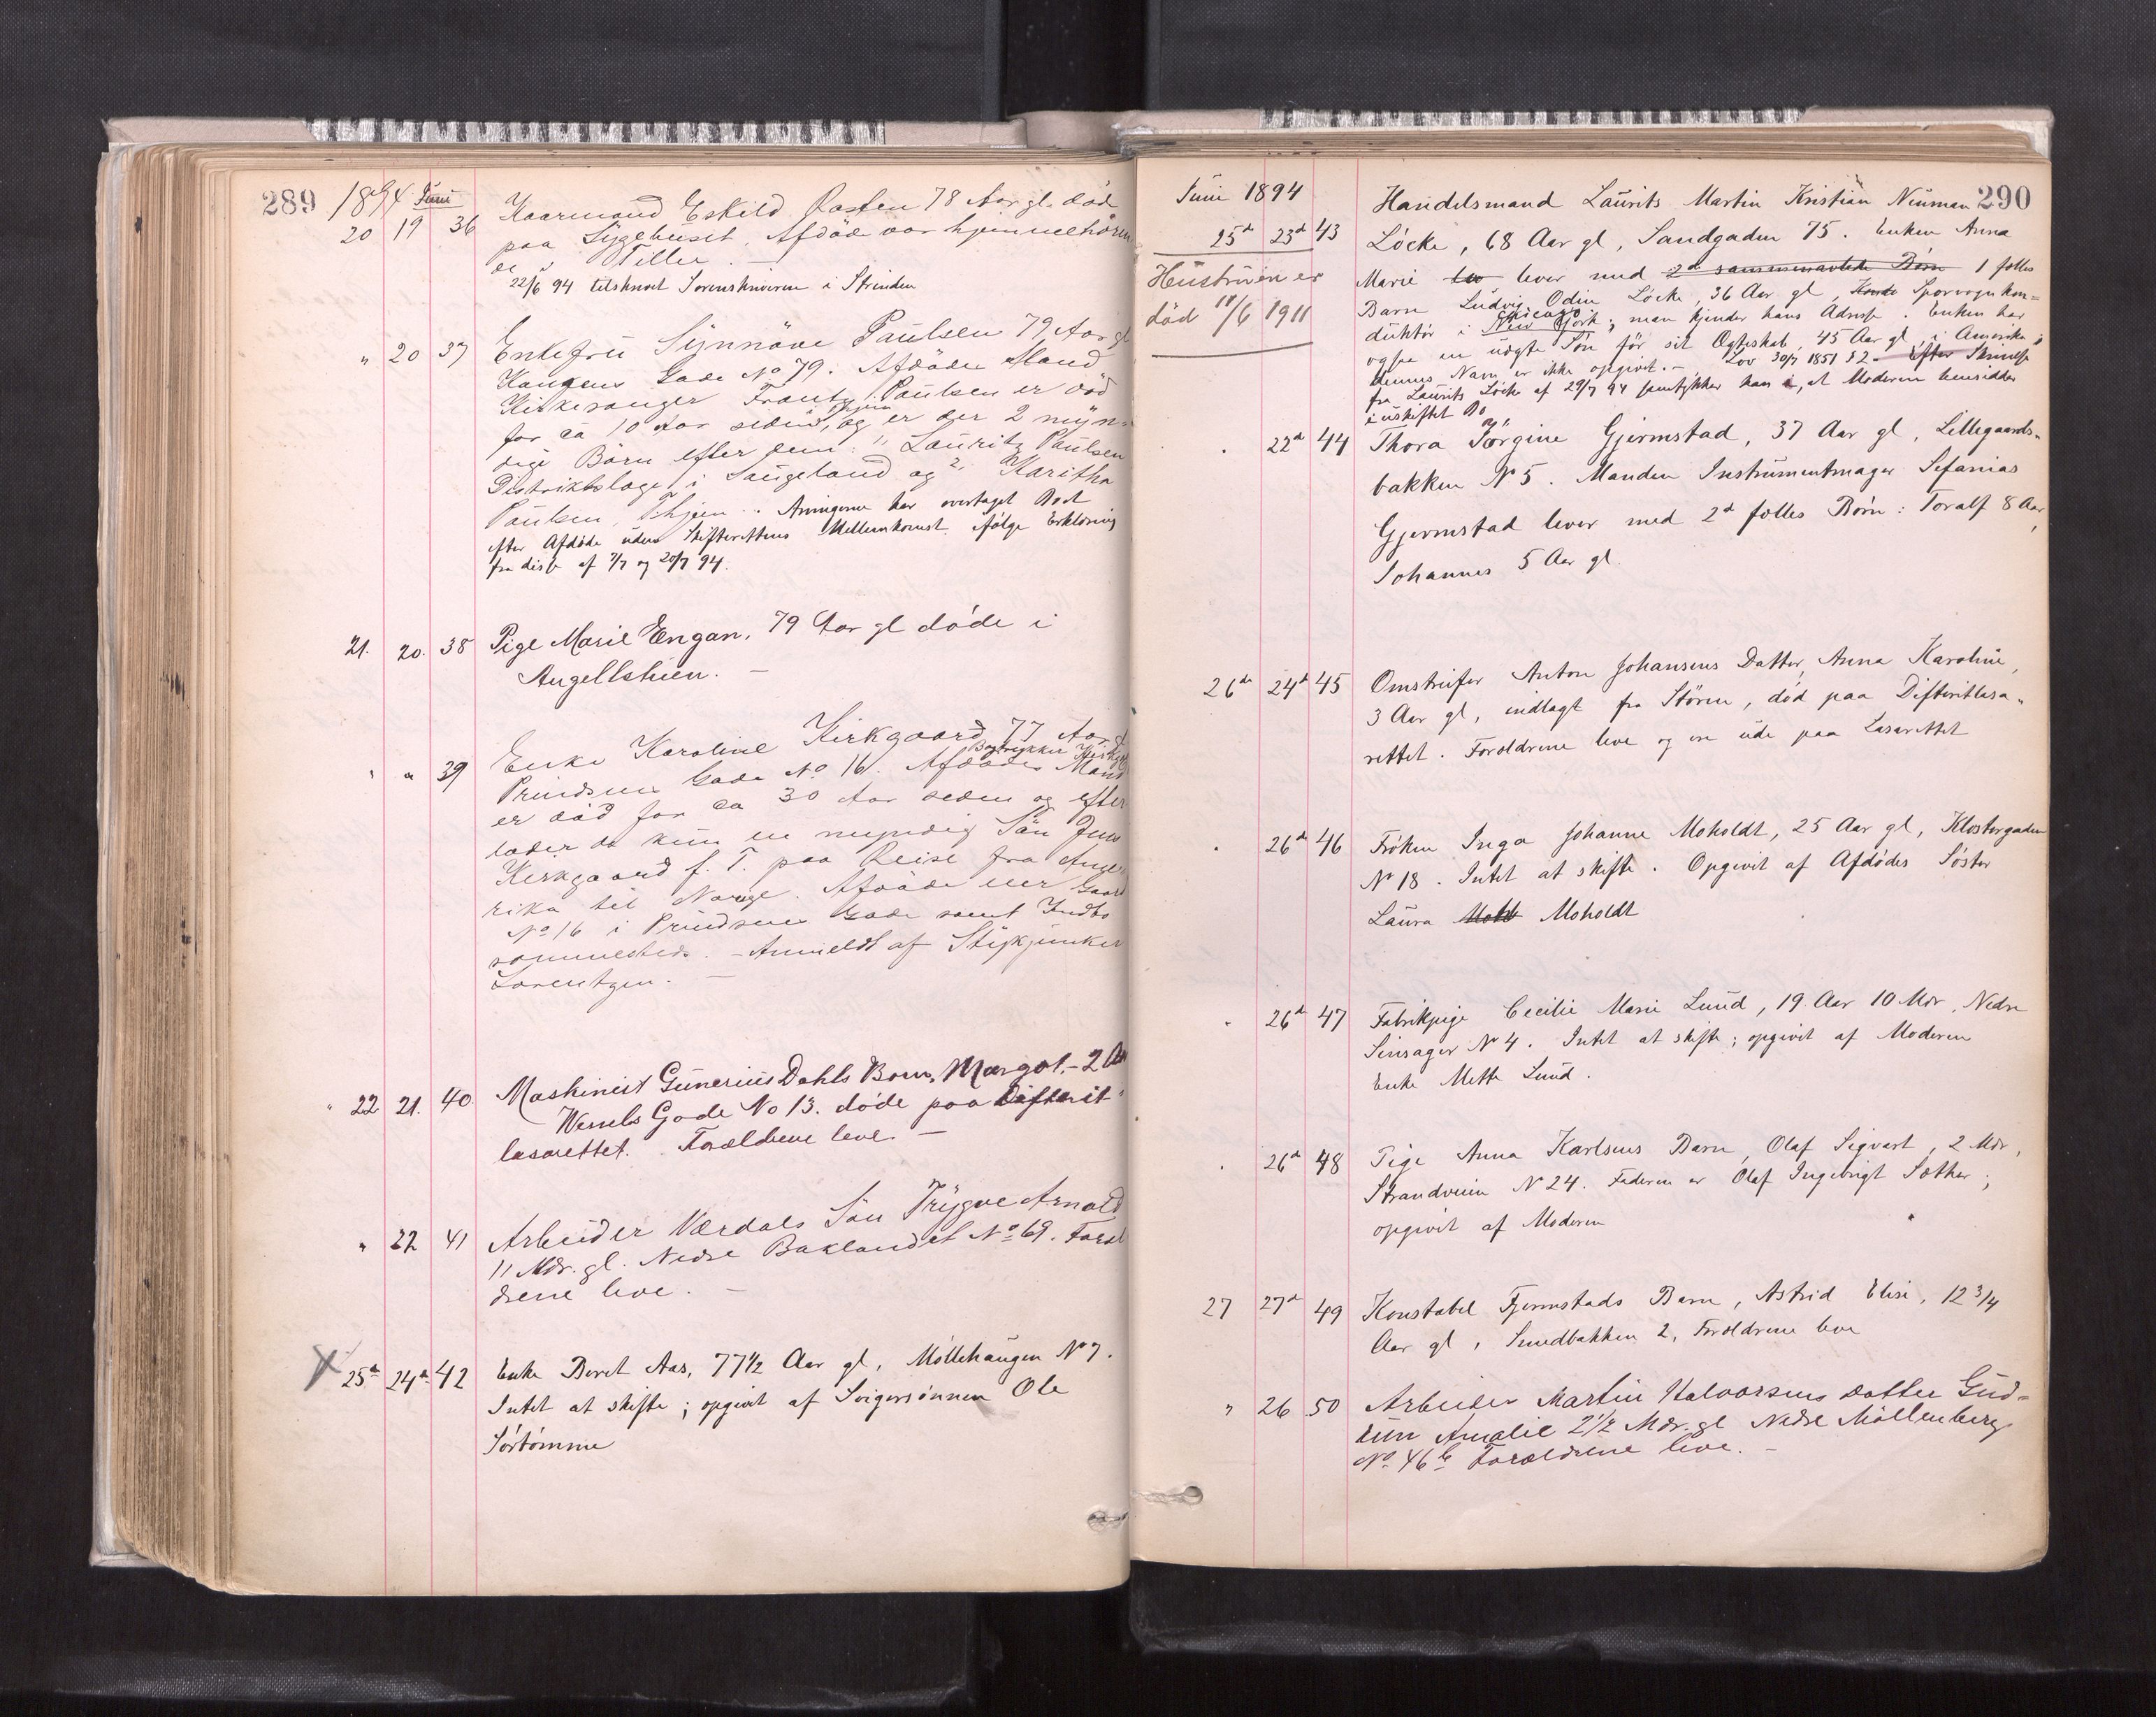 289 1894 Juni
20 19 36 Kaarmand Eskild Rasten 78 Aar gl. død
paa Sygehuset. Afdøde var hjemmehøren
de i Tiller. —
22/6 94 tilskrevet Sorenskriveren i Strinden
" 20 37 Enkefru Synnöve Paulsen 79 Aar gl
Kongens Gade No 79. Afdødes Mand
Kirkesanger Frantz Paulsen er død
for ca 10 Aar siden, og er der 2 myn=
dige Børn efter dem: 1, Lauritz Paulsen
Distriktslæge i Saugeland og 2, Maritha
Paulsen, Thjem. Arvingerne har overtaget Boet
efter Afdøde uden Skifterettens Mellemkomst ifølge Erklæring
fra disse af 7/7 og 20/7 94.
21. 20. 38 Pige Marie Engan, 79 Aar gl døde i
Angellstuen. —
" " 39 Enke Karoline Kirkgaard 77 Aar gl
Bogtrykker Kirkgd
Prindsens Gade No 16. Afdødes Mand
er død for ca 30 Aar siden og efter
lader de kun en myndig Søn Jens
Kirkgaard f. T. paa Reise fra Ame
rika til Norge. Afdøde eier Gaard
No 16 i Prindsens Gade samt Indbo
sammesteds. - Anmeldt af Stykjunker
Lorentzen. —
" 22 21. 40. Maskinist Gunerius Dahls Barn, Margot, - 2 Aar
Wessels Gade No 13. døde paa Difterit
lasarettet. Forældrene leve. —
" 22 41 Arbeider Værdals Søn Trygve Arnold
11 Mdr. gl. Nedre Baklandet No 69. Foræl
drene leve. —
25de 24de 42 Enke Beret Aas, 77 1/2 Aar gl, Møllehaugen No 7.
Intet at skifte; opgivet af Svigersønnen Ole
Sørtømme
Juni 1894 290
25de 23de 43 Handelsmand Laurits Martin Kristian Neuman
Løcke, 68 Aar gl, Sandgaden 75. Enken Anna
Husturen er
død 11/6 1911
Marie lev lever med 2de sammenavlede Børn 1 fælles
Barn Ludvig Odin Löcke, 36 Aar gl, Sporvognkon=
Chicago
duktør i New York; man kjender hans Adresse. Enken har
ogsaa en uægte Søn før sit Ægteskab, 45 Aar gl, i Amerika;
dennes Navn er ikke opgivet. - Lov 30/7 1851 § 2 - Efter Skrivelse
fra Laurits Löcke af 29/7 94 samtykker han i, at Moderen hensidder
i uskiftet Bo
" 22de 44 Thora Jørgine Gjermstad, 37 Aar gl, Lillegaards-
bakken No 5. Manden Instrumentmager Sefanias
Gjermstad lever med 2de fælles Børn: Toralf 8 Aar,
Johannes 5 Aar gl
26de 24de 45 Omstreifer Anton Johansens Datter, Anna Karoline,
3 Aar gl, indlagt fra Støren, død paa Difteritlasa-
rettet. Forældrene leve og ere ude paa Lasarettet
" 26de 46 Frøken Inga Johanne Moholdt, 25 Aar gl, Klostergaden
No 18. Intet at skifte. Opgivet af Afdødes Søster
Laura Moholdt
" 26de 47 Fabrikpige Cecilie Marie Lund, 19 Aar 10 Mdr, Nedre
Sinsager No 4. Intet at skifte; opgivet af Moderen
Enke Mette Lund.
" 26de 48 Pige Anna Karlsens Barn, Olaf Sigvart, 2 Mdr,
Strandveien No 24. Faderen er Olaf Ingebrigt Sæther;
opgivet af Moderen
27 27de 49 Konstabel Fjermstads Barn, Astrid Elise, 12 3/4
Aar gl, Smedbakken 2, Forældrene leve
" 26 50 Arbeider Martin Halvorsens Datter Gud=
run Amalie 2 1/2 Mdr. gl Nedre Møllenberg
No. 46 b Forældrene leve. —